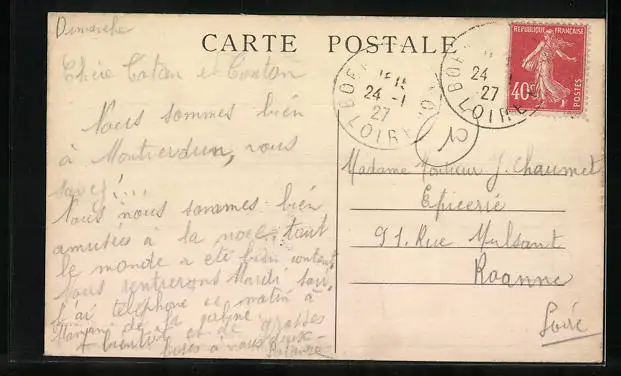 Dimanche
CARTE POSTALE
Chère Tatan et Tonton
Nous sommes bien
à Montverdun, vous
savez!...
Nous nous sommes bien
amusées à la noce, tout
le monde a été bien content
Nous rentrerons Mardi soir,
J'ai téléphoné ce matin à
Maman de la
à bientôt et de grosses
bises à vous deux
BOEN
15 15
24 -1
27
LOIRE
BOEN
24
27
LOIRE
REPUBLIQUE FRANÇAISE
40c
POSTES
10
Madame Monsieur J. Chaumet
Epicerie
91 Rue Mulsant
Roanne
Loire